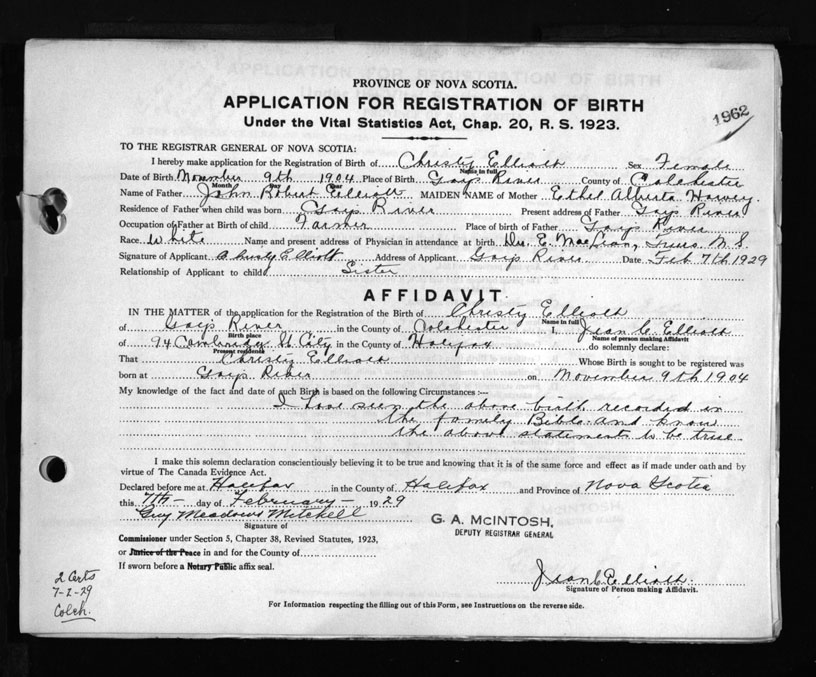 PROVINCE OF NOVA SCOTIA.
APPLICATION FOR REGISTRATION OF BIRTH
Under the Vital Statistics Act, Chap. 20, R. S. 1923.
1962
TO THE REGISTRAR GENERAL OF NOVA SCOTIA:
I hereby make application for the Registration of Birth of Christy Elliott Sex Female
Name in full
Date of Birth November 9th 1904 Place of Birth Gays River County of Colchester
Month Day Year
Name of Father John Robert Elliott MAIDEN NAME of Mother Ethel Alberta
Residence of Father when child was born Gays River Present address of Father Gays River
Occupation of Father at Birth of child Farmer Place of birth of Father Gays River
Race White Name and present address of Physician in attendance at birth E. MacLean, Truro N. S.
Signature of Applicant Christy Elliott Address of Applicant Gays River Date Feb 7th 1929
Relationship of Applicant to child Sister
AFFIDAVIT
IN THE MATTER of the application for the Registration of the Birth of Christy Elliott
Name in full
of Gays River in the County of Colchester I, Jean C. Elliott
Birth place
Name of person making Affidavit
of 94 Cambridge St City in the County of Halifax do solemnly declare:
Present residence
That Christy Elliott Whose Birth is sought to be registered was
born at Gays River on November 9th 1904
My knowledge of the fact and date of such Birth is based on the following Circumstances :—
I have seen the above birth recorded in
the family Bible and know
the above statement to be true
I make this solemn declaration conscientiously believing it to be true and knowing that it is of the same force and effect as if made under oath and by
virtue of The Canada Evidence Act.
Declared before me at Halifax in the County of Halifax and Province of Nova Scotia
this 7th day of February 1929
Guy Meadows Mitchell
Signature of
G. A. McINTOSH,
DEPUTY REGISTRAR GENERAL
Commissioner under Section 5, Chapter 38, Revised Statutes, 1923,
or Justice of the Peace in and for the County of
If sworn before a Notary Public affix seal.
Jean C Elliott
Signature of Person making Affidavit.
2 Certs
7-2-29
Colch.
For Information respecting the filling out of this Form, see Instructions on the reverse side.